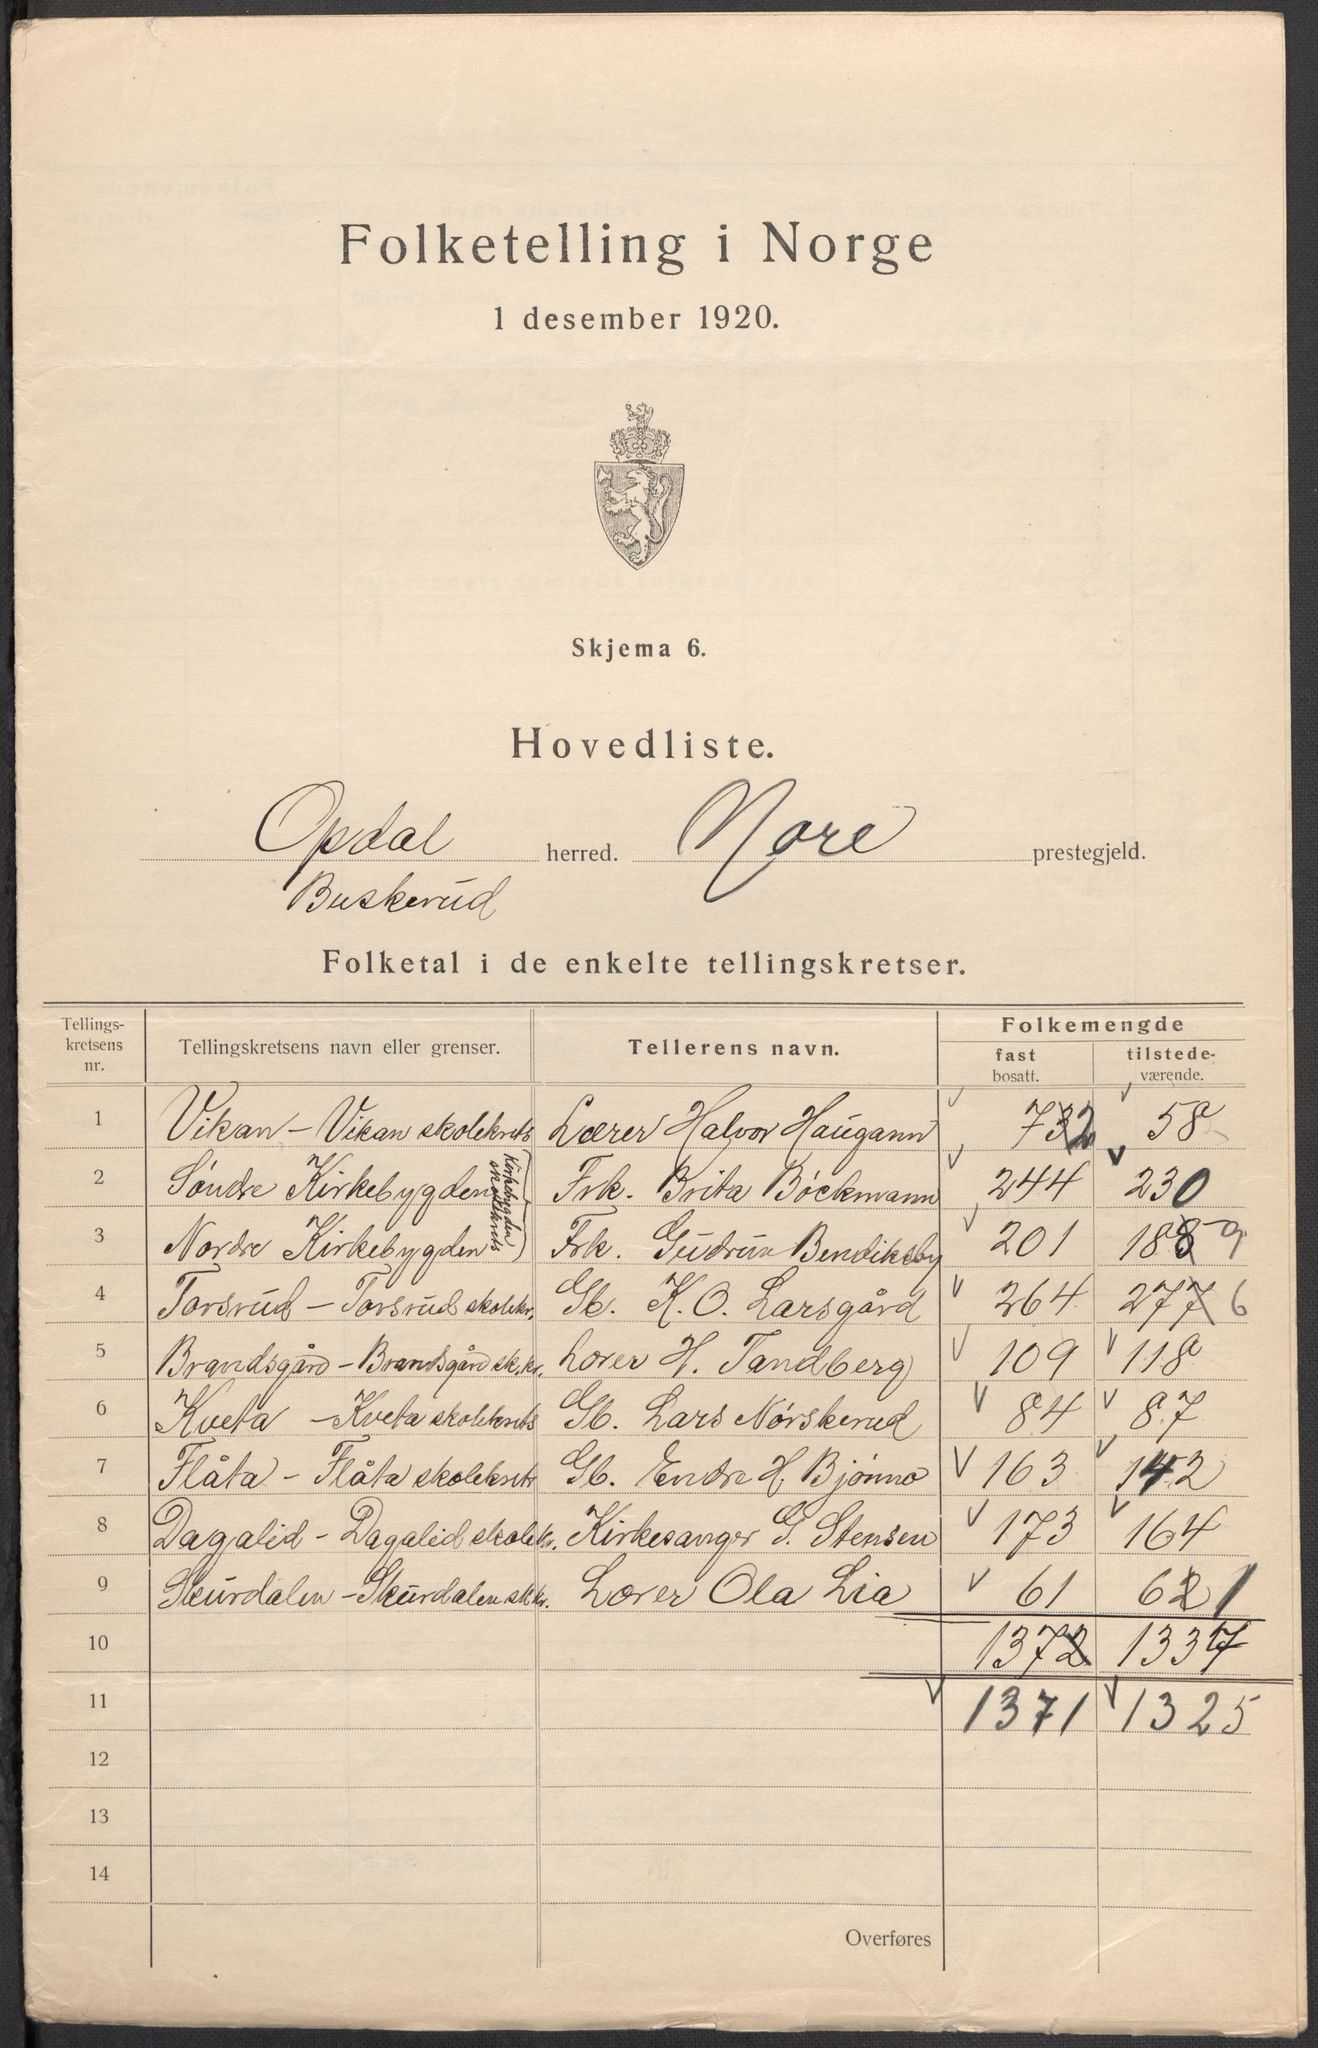 Folketelling i Norge
1 desember 1920.
Skjema 6.
Hovedliste.
Opdal herred. Nore prestegjeld.
Buskerud
Folketal i de enkelte tellingskretser.
Tellings-kretsens nr. Tellingskretsens navn eller grenser. Tellerens navn. Folkemengde
fast bosatt. tilstede-værende.
1 Vikan – Vikan skolekrets Lærer Halvor Haugann 732 58
2 Søndre Kirkebygden Kirkebygden skolekrets Frk. Brita Böckmann 244 230
3 Nordre Kirkebygden Frk. Gudrun Bendiksby 201 188 9
4 Torsrud – Torsrud skolekr. Gb. K. O. Larsgård 264 277 6
5 Brandsgård – Brandsgård sk.kr. Lærer H. Tandberg 109 118
6 Kveta – Kveta skolekrets Gb. Lars Nørskerud 84 87
7 Flåta – Flåta skolekrets Gb. Endre H. Bjønno 163 142
8 Dagalid – Dagalid skolekr. Kirkesanger G. Stensen 173 164
9 Skurdalen – Skurdalen sk.kr. Lærer Ola Lia 61 621
10 1372 1337
11 1371 1325
12
13
14
Overføres